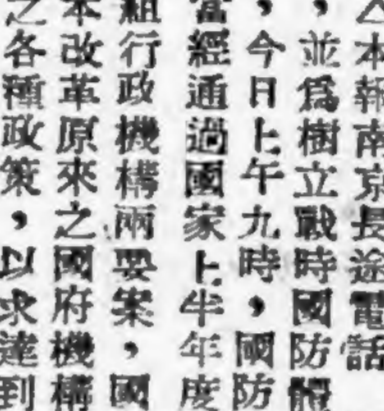 本報南京長途電話
，並爲樹立戰時國防體
，今日上午九時，國防
當經通過國家上半年度
組行政機構兩要案，國
本改革原來之國府機構
之各種政策，以求達到